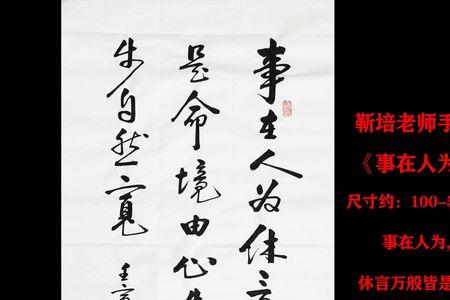 事在人为休言
是命境由心
步自然宽
靳培老师手
《事在人为
尺寸约：100-
事在人为，
休言万般皆是